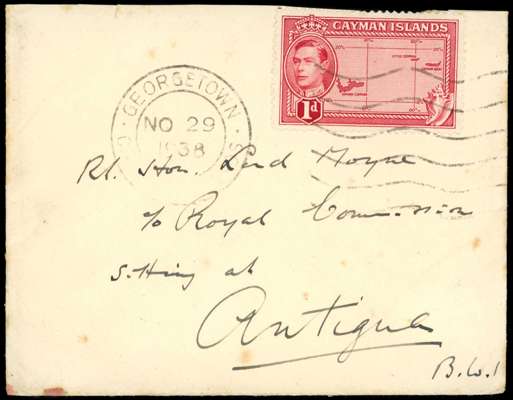 CAYMAN ISLANDS
1d
GEORGETOWN
NO 29
1938
Rt. Hon. Lord Moyne
c/o Royal Commission
sitting at
Antigua
B.W.I